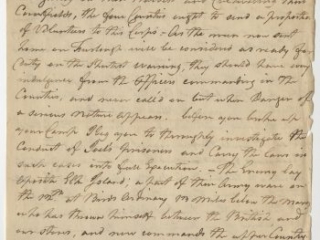 Congratulate, the four Counties ought to send a proportion
of Volunteers to this Corps – As the men now sent
home on Furlough will be considered as ready for
Duty on the Shortest warning, they should have every
indulgence from the Officers commanding in the
Counties, and never call'd on but when Danger of
a serious Nature appears. before you broke up
your Camp I beg you to throughly investigate the
Conduct of Prisoners and Carry the Laws in
such cases into full Execution. – The Enemy lay
oposite Elk Island; a part of their Army were on
the at Birds Ordinary 20 Miles below the
who has thrown himself between the British and
our Stores, and now commands the upper Country